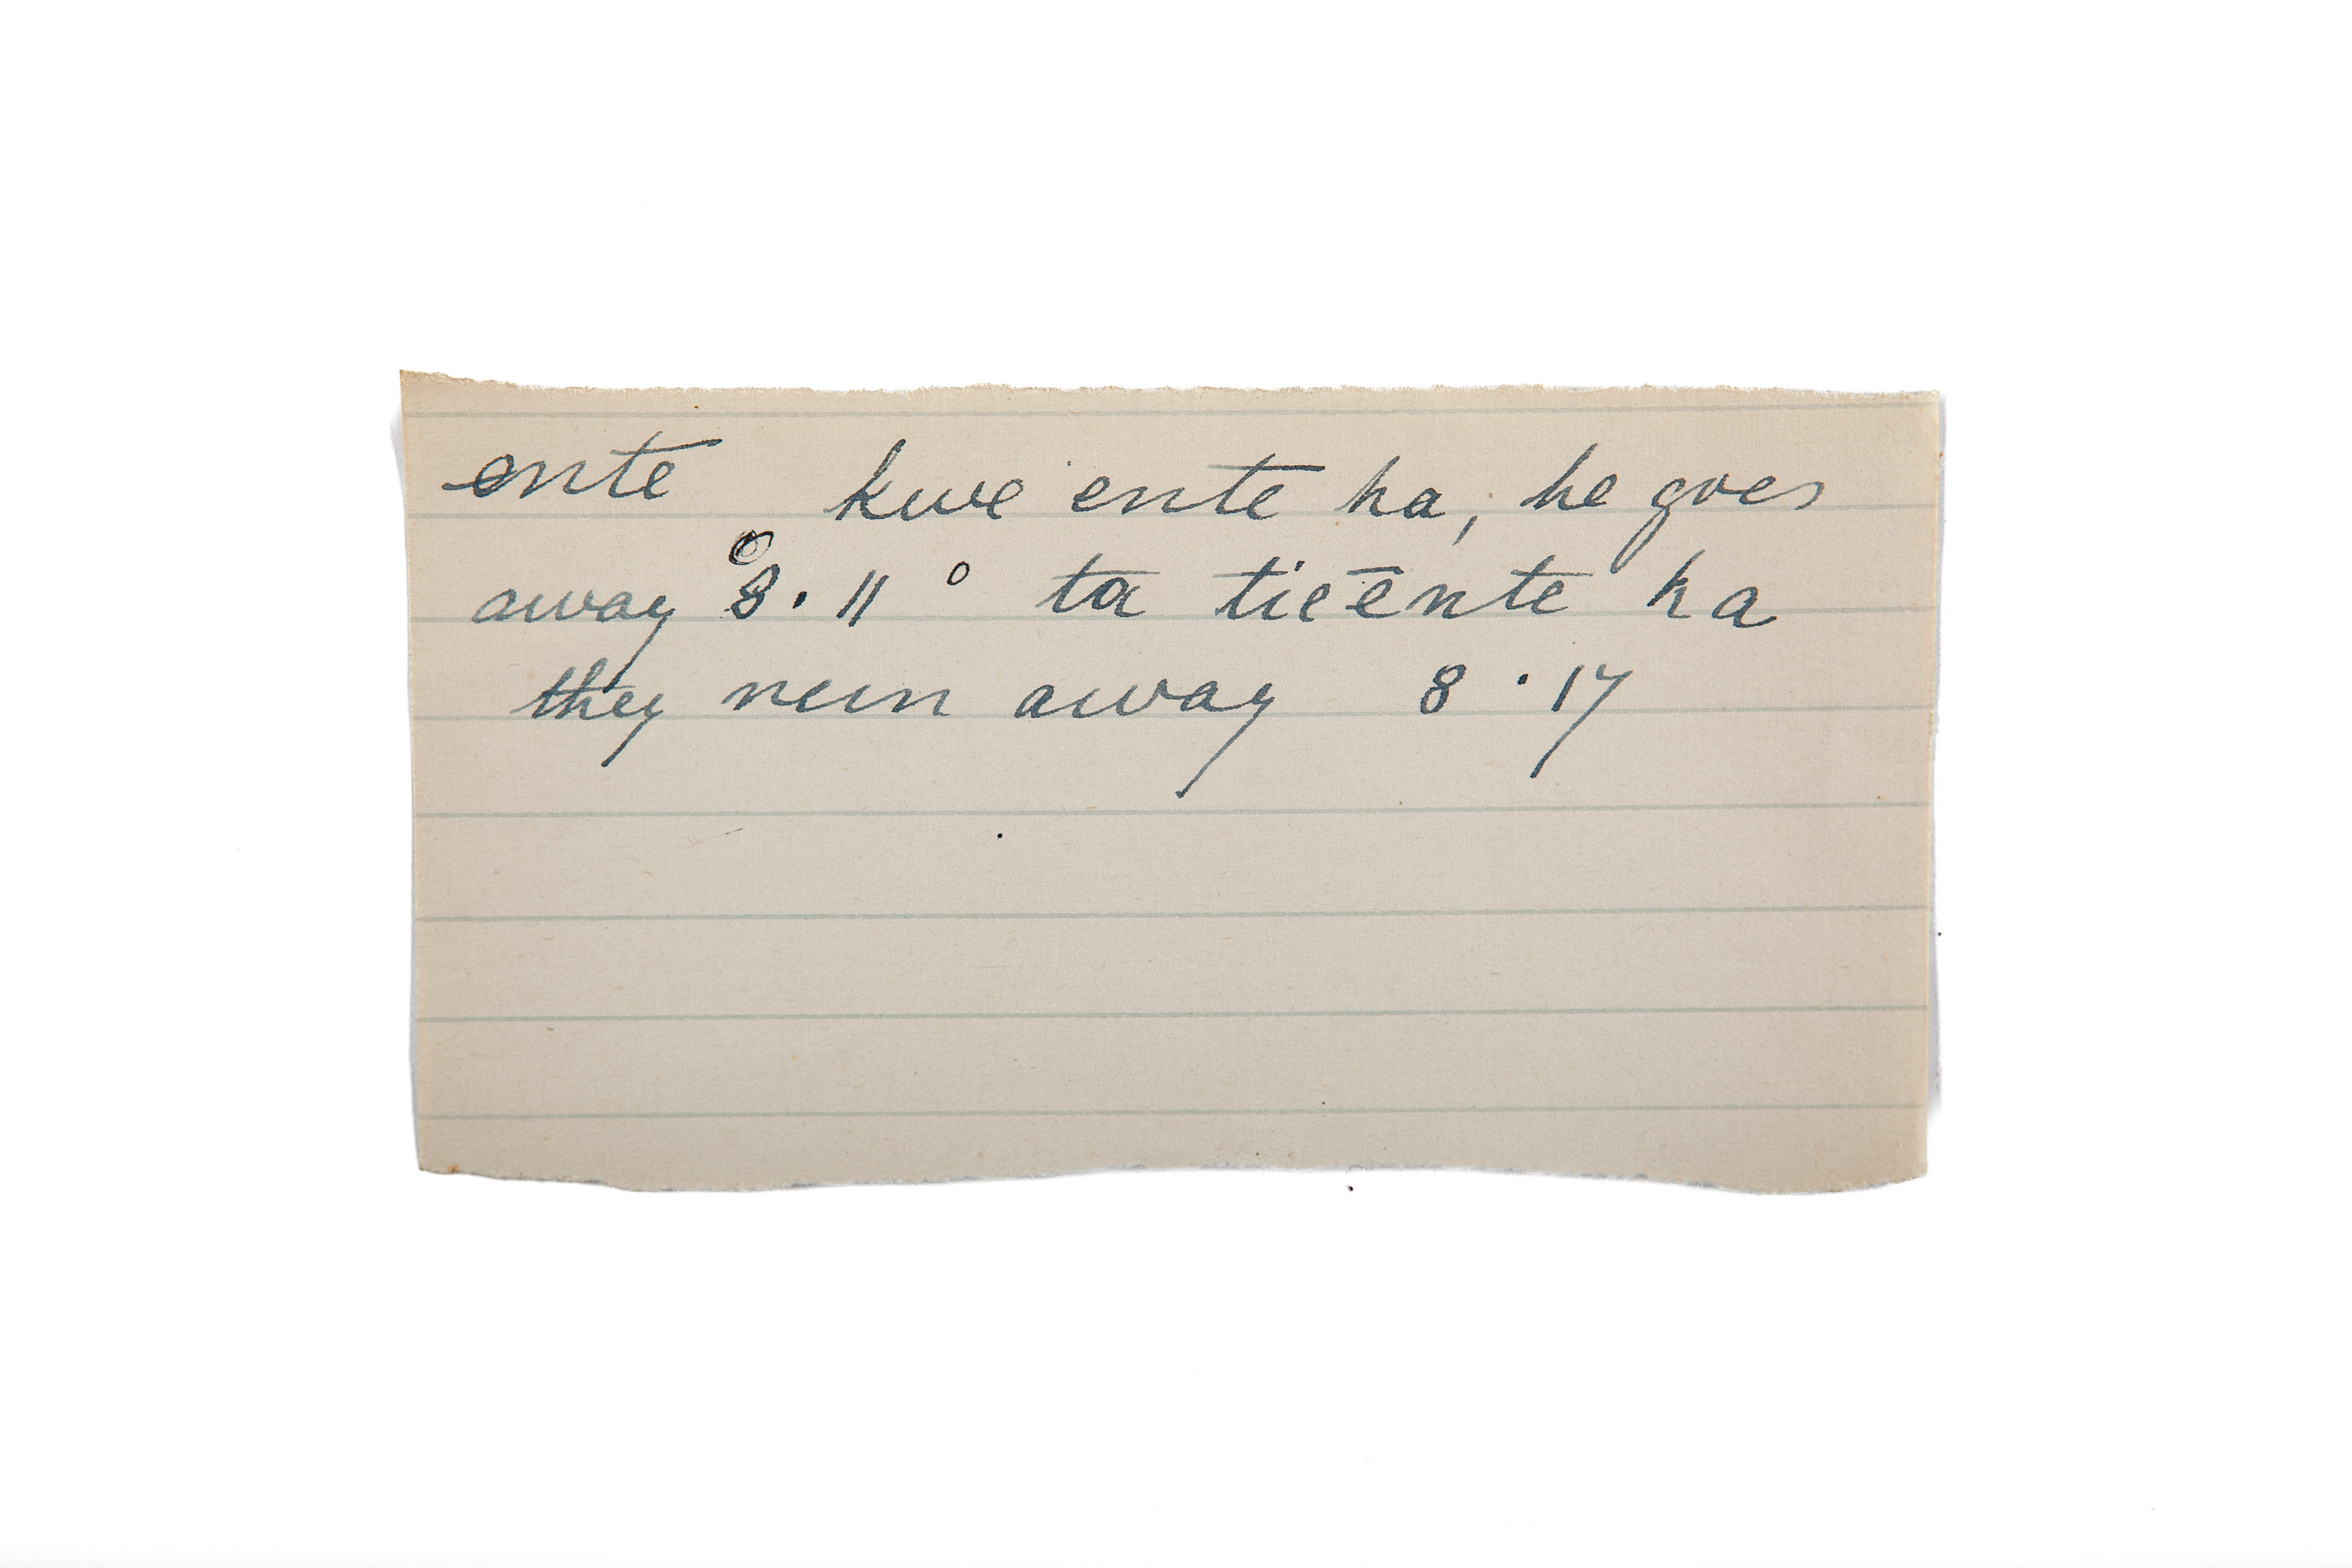 ente kwe ente ha, he goes
away 8. 11 ° ta ticēnte ha
they run away 8 · 17